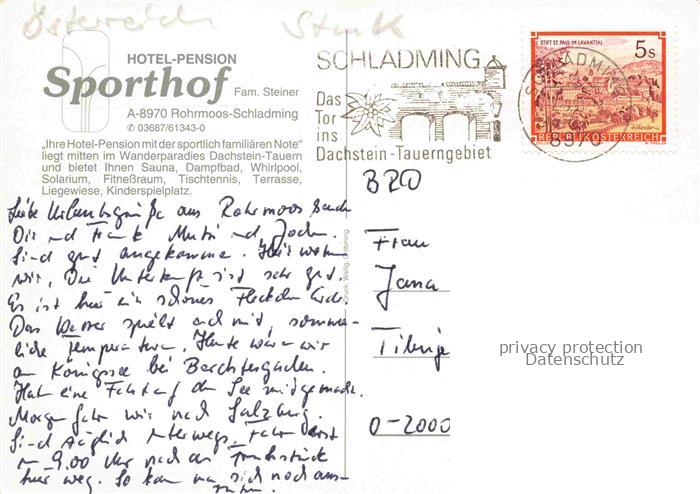 Österreich
HOTEL-PENSION
Sporthof Fam. Steiner
A-8970 Rohrmoos-Schladming
✆ 03687/61343-0
„Ihre Hotel-Pension mit der sportlich familiären Note"
liegt mitten im Wanderparadies Dachstein-Tauern
und bietet Ihnen Sauna, Dampfbad, Whirlpool,
Solarium, Fitneßraum, Tischtennis, Terrasse,
Liegewiese, Kinderspielplatz.
Liebe Urlaubsgrüße aus Rohrmoos senden
Dir und Frank Mutti und Jochen.
Sind gut angekommen. Hier wohnen
wir. Die Unterkunft ist sehr gut.
Es ist hier ein schönes Fleckchen Erde.
Das Wetter spielt auch mit, sommer-
liche Temperaturen. Heute waren wir
am Königssee bei Berchtesgaden.
Hab eine Fahrt auf dem See mitgemacht.
Morgen fahren wir nach Salzburg.
Sind täglich unterwegs, fahren erst
um 9.00 Uhr nach dem Frühstück
hier weg. So kann man sich noch aus-
ruhen.
SCHLADMING
Das
Tor
ins
Dachstein-Tauerngebiet
STIFT ST. PAUL IM LAVANTTAL
5s
REPUBLIK ÖSTERREICH
SCHLADMING
8970
BRD
Frau
Jana
0-2000
privacy protection
Datenschutz